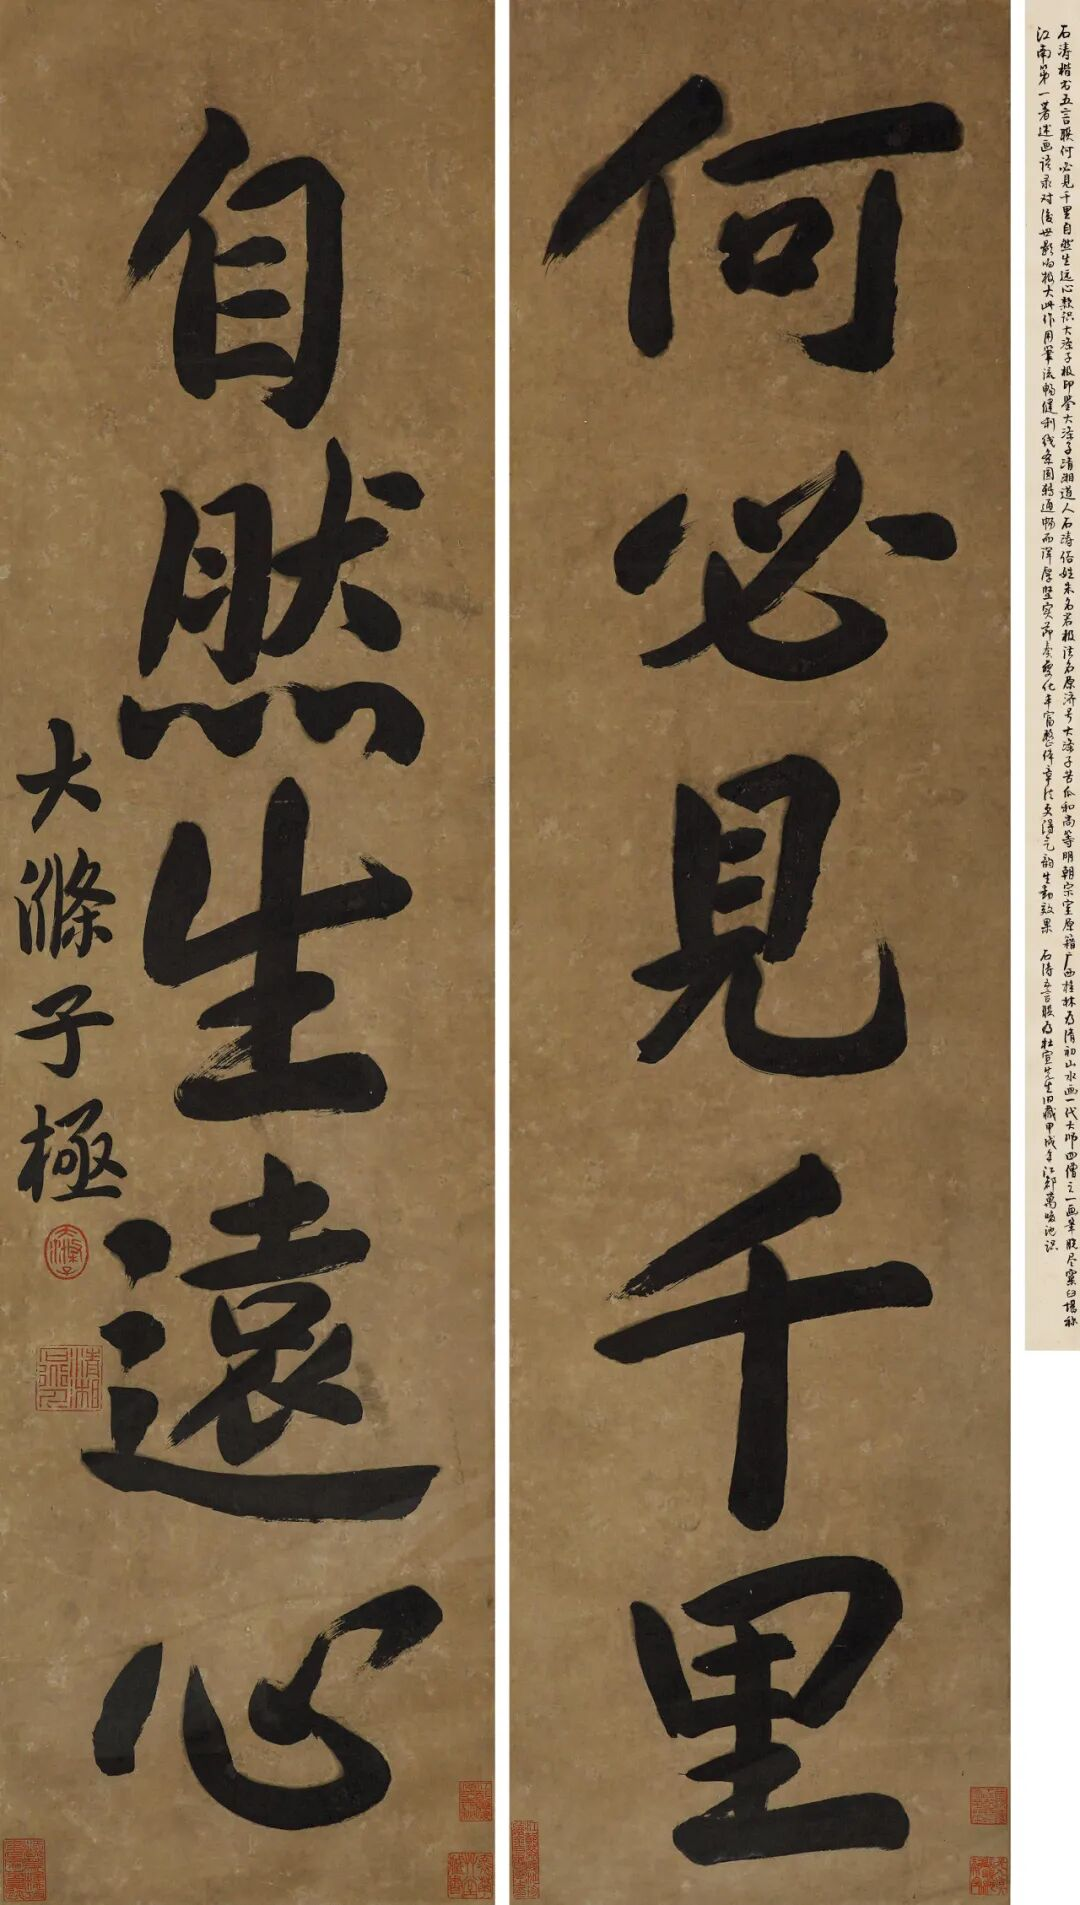 石涛楷书五言联何必见千里自然生远心款识大涤子极印鉴大涤子清湘道人石涛俗姓朱名若极法名原济号大涤子苦瓜和尚等明朝宗室原籍广西桂林为清初山水画一代大师四僧之一画笔脱尽窠臼堪称
江南第一著述画语录对后世影响极大此作用笔流畅健利线条圆转通畅而浑厚坚实节奏变化丰富整体章法更得气韵生动效果 石涛五言联为杜宣先生旧藏甲戌年江都萬
何必見千里
自然生遠心
大滌子極
大滌子
清湘